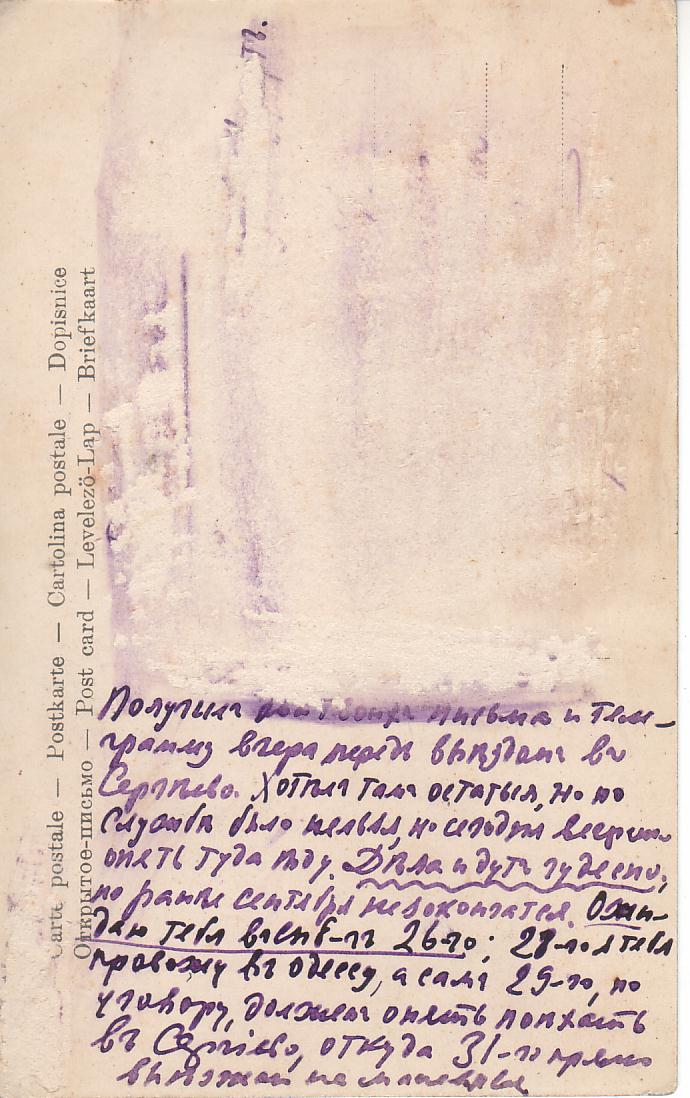 Carte postale — Postkarte — Cartolina postale — Dopisnice
Открытое-письмо — Post card — Levelezö-Lap — Briefkaart
Получилъ письма и теле-
грамму вчера передъ выѣздомъ въ
Сергѣево. Хотѣлъ тамъ остаться, но по
службѣ было нельзя, но сегодня вечеромъ
опять туда ѣду. Дѣла идутъ чудесно,
но ранѣе сентября не закончатся. Ожи-
даю тебя 26-го; 28-го я тебя
провожу въ Одессу, а самъ 29-го, по
уговору, долженъ опять поѣхать
въ Сергѣево, откуда 31-го прямо
выѣзжаю на маневры